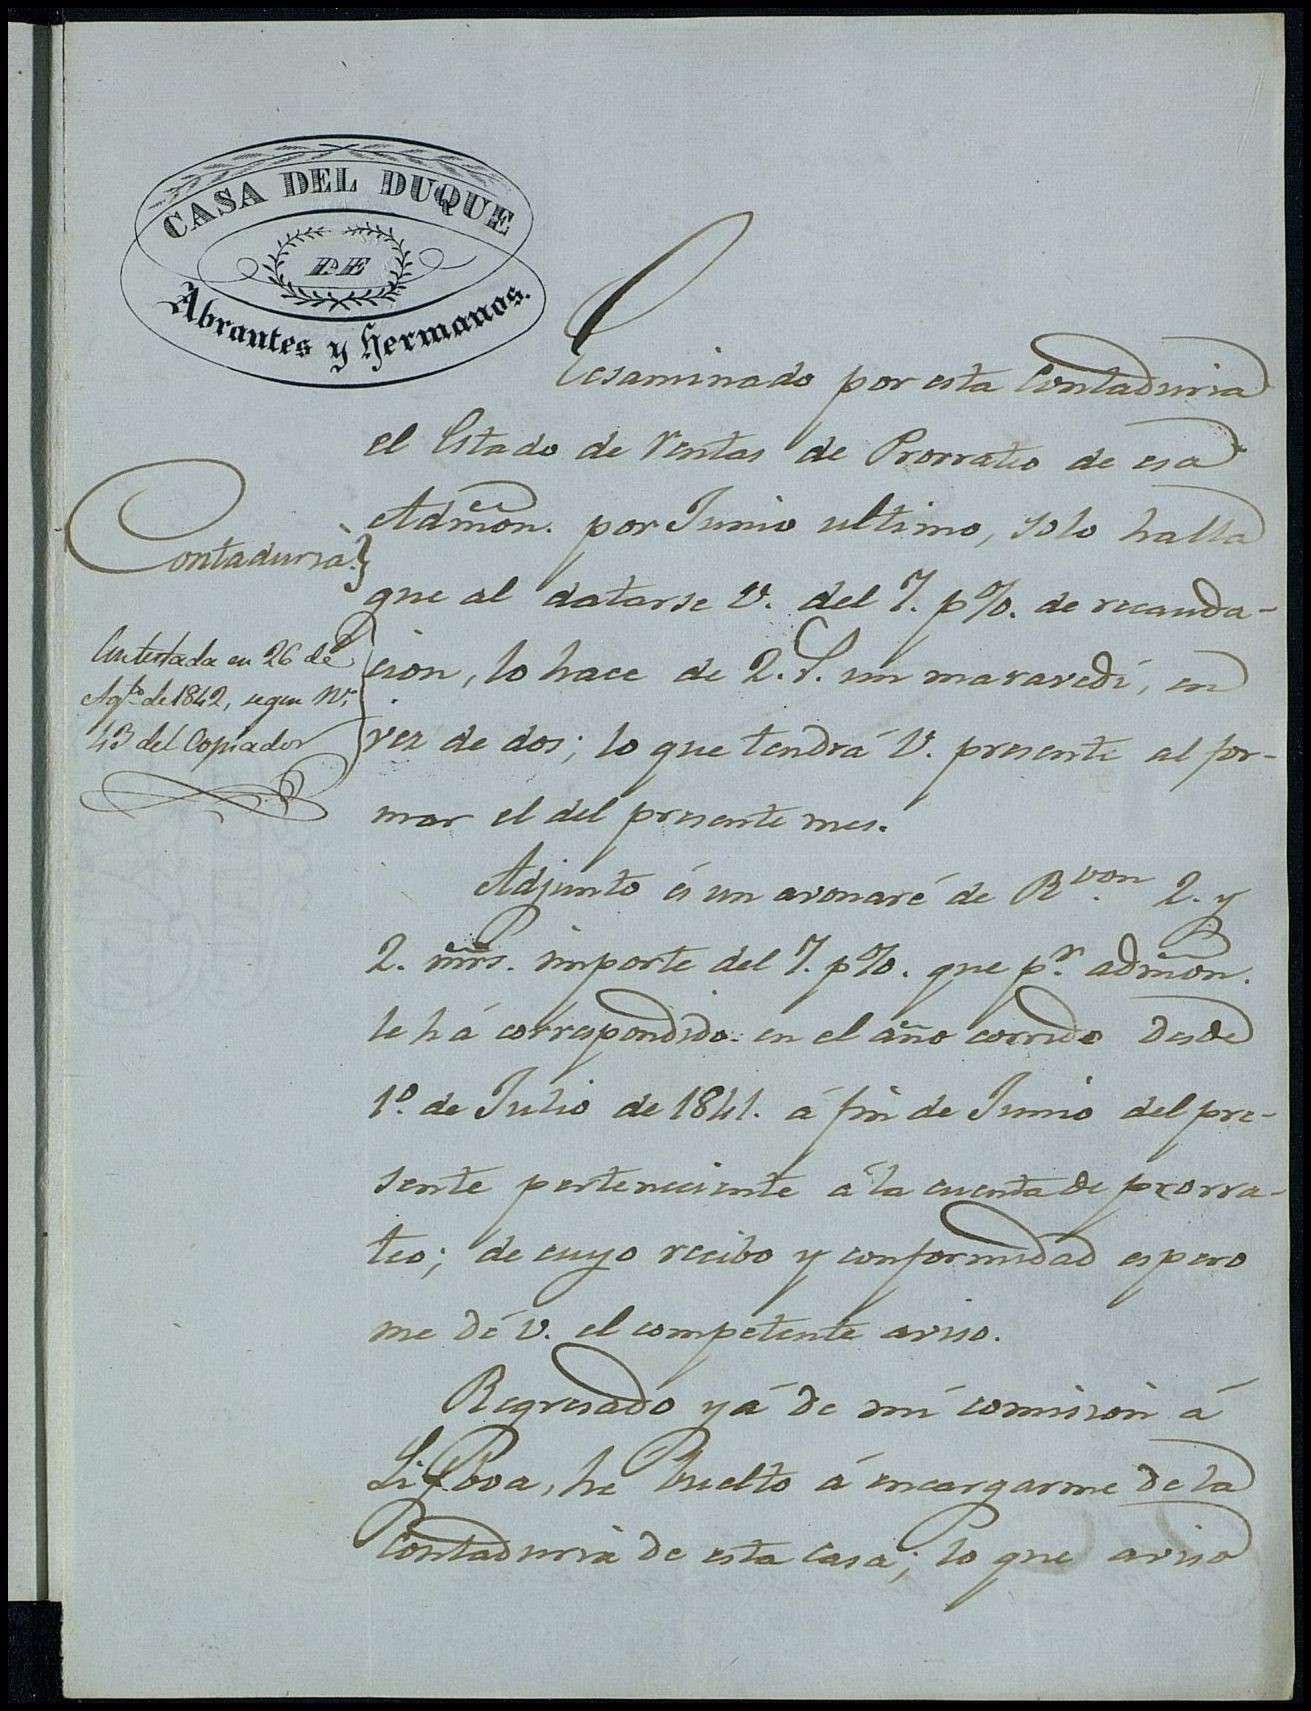 CASA DEL DUQUE
DE
Abrantes y Hermanos.
Contaduria.
Contestada en 26 de
Agto de 1842, segun Nº
43 del Copiador
Ecsaminado por esta Contaduria
el Estado de Ventas de Prorrateo de esa
Admon. por Junio ultimo, solo halla
que al datarse V. del 7. p%. de recauda-
cion, lo hace de 2. rs. un maravedí, en
vez de dos; lo que tendrá V. presente al for-
mar el del presente mes.
Adjunto és un avonaré de Rvon. 2. y
2. mrs. importe del 7. p%. que pr. admon.
le há correspondido en el año corrido desde
1º. de Julio de 1841. á fin de Junio del pre-
sente perteneciente á la cuenta de prorra-
teo; de cuyo recibo y conformidad espero
me dé V. el competente aviso.
Regresado yá de mi comision á
Lisboa, he buelto á encargarme de la
Contaduria de esta Casa; lo que aviso